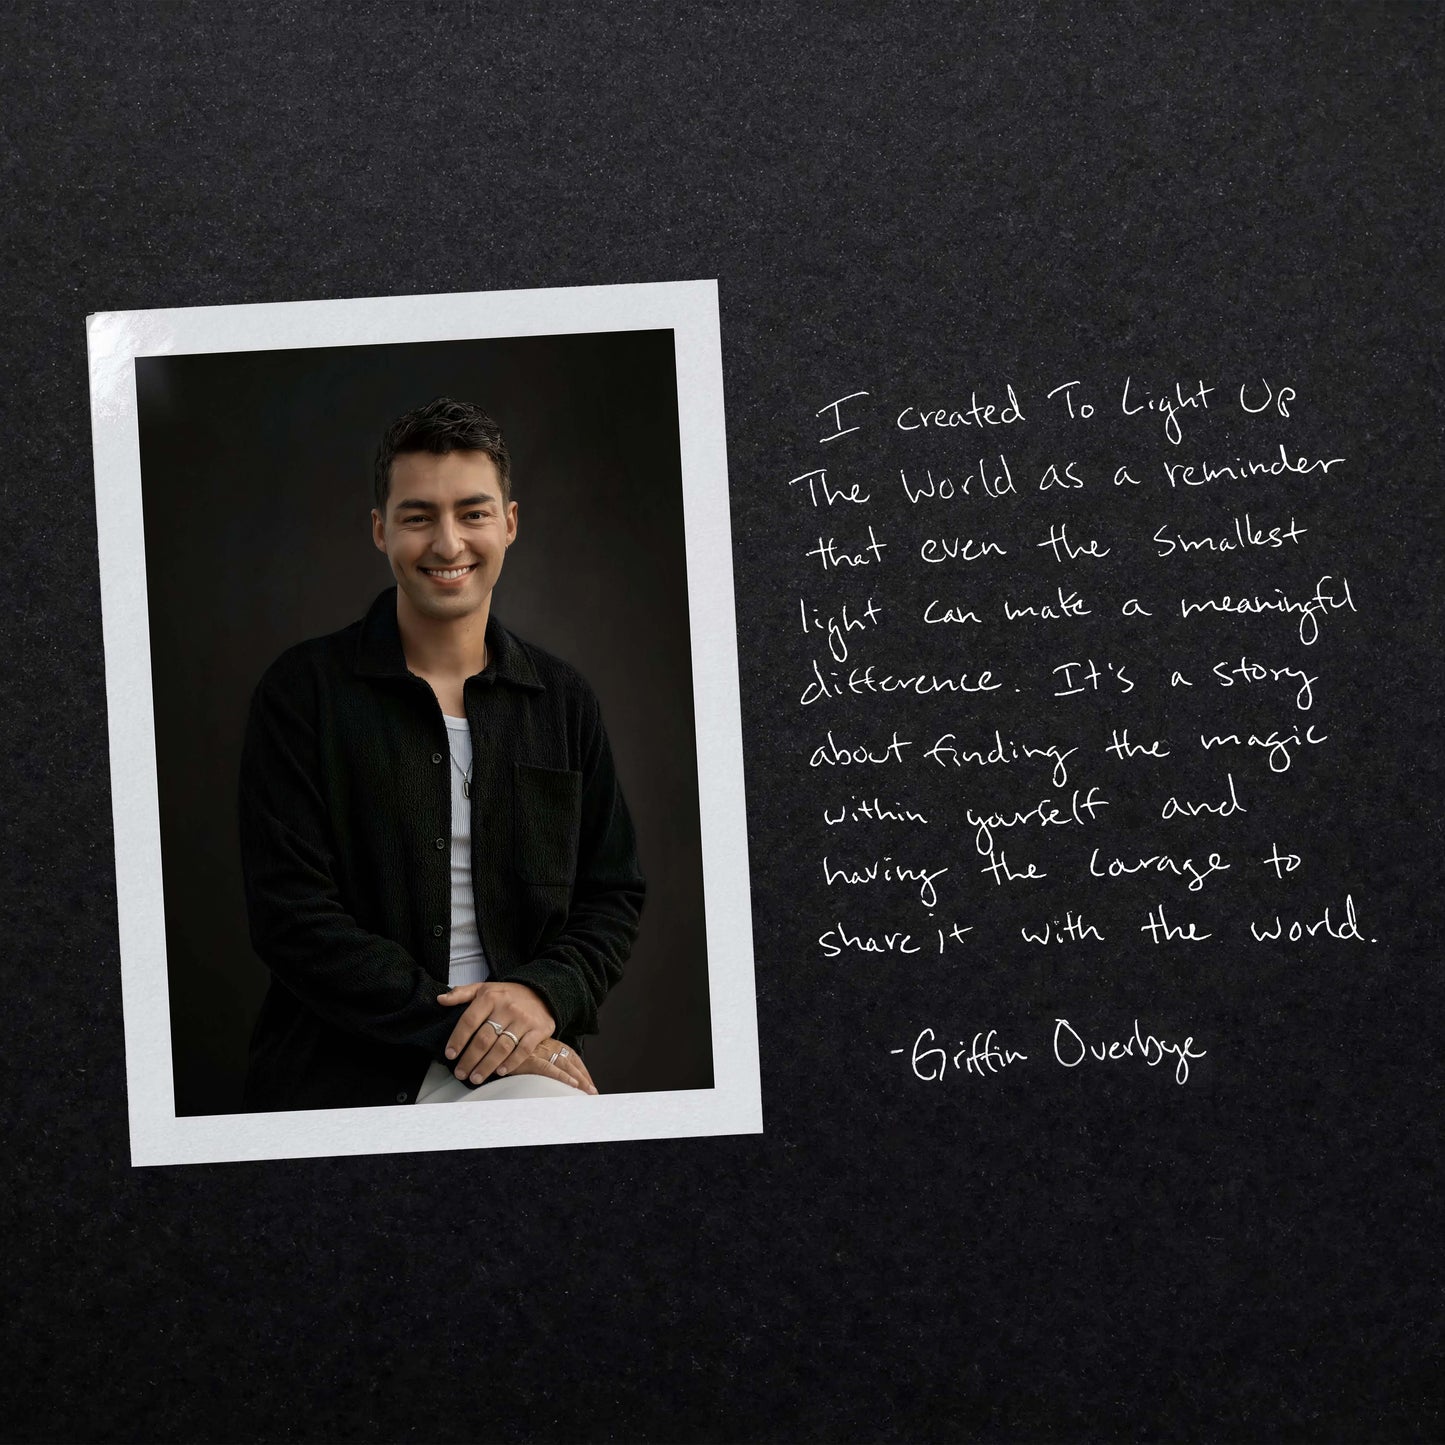 I created To Light Up
The World as a reminder
that even the smallest
light can make a meaningful
difference. It's a story
about finding the magic
within yourself and
having the courage to
share it with the world.
-Griffin Overbye